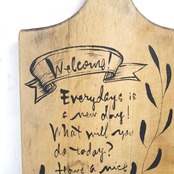 Welcome!
Everydays is
a new day!
What will you
do today?
Have a nice